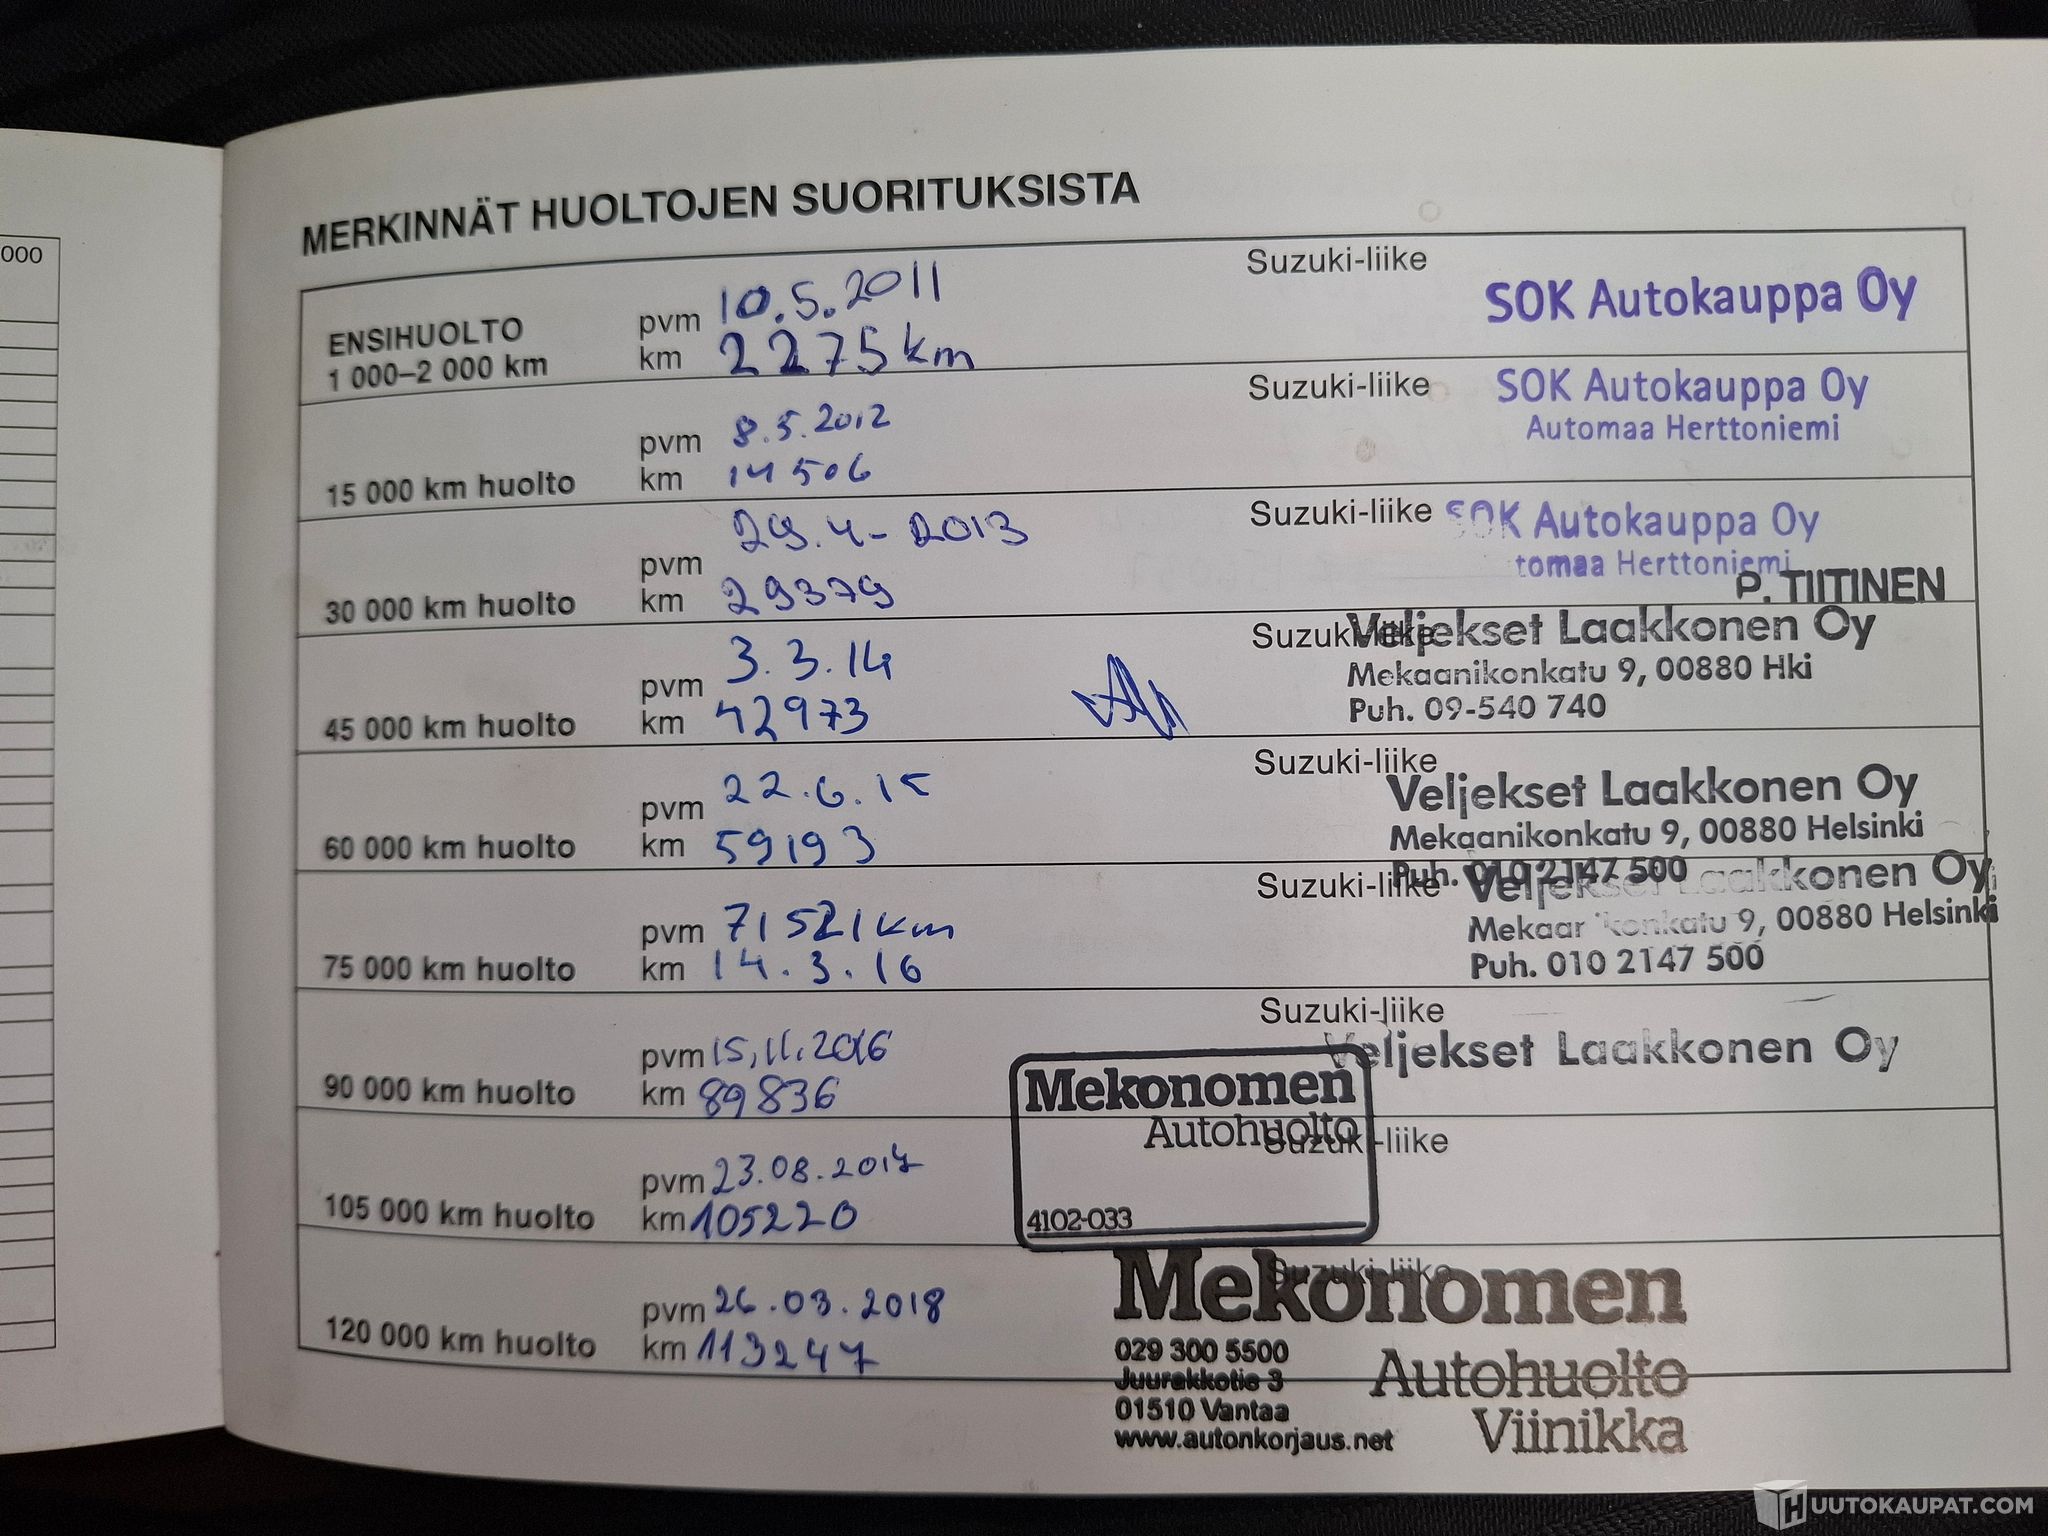 000
MERKINNÄT HUOLTOJEN SUORITUKSISTA
ENSIHUOLTO
1 000–2 000 km
pvm 10.5.2011
km 2275 km
Suzuki-liike
SOK Autokauppa Oy
15 000 km huolto
pvm 8.5.2012
km 14 506
Suzuki-liike
SOK Autokauppa Oy
Automaa Herttoniemi
30 000 km huolto
pvm 29.4-2013
km 29379
Suzuki-liike
SOK Autokauppa Oy
tomaa Herttoniemi
P. TIITINEN
45 000 km huolto
pvm 3.3.14
km 42973
Suzuki-liike
Veljekset Laakkonen Oy
Mekaanikonkatu 9, 00880 Hki
Puh. 09-540 740
60 000 km huolto
pvm 22.6.15
km 59193
Suzuki-liike
Veljekset Laakkonen Oy
Mekaanikonkatu 9, 00880 Helsinki
Puh. 010 2147 500
75 000 km huolto
pvm 71521km
km 14.3.16
Suzuki-liike
Veljekset Laakkonen Oy
Mekaar ikonkatu 9, 00880 Helsinki
Puh. 010 2147 500
90 000 km huolto
pvm 15.11.2016
km 89836
Suzuki-liike
Veljekset Laakkonen Oy
105 000 km huolto
pvm 23.08.2017
km 105220
Suzuki-liike
Mekonomen
Autohuolto
4102-033
120 000 km huolto
pvm 26.03.2018
km 113247
Suzuki-liike
Mekonomen
029 300 5500
Juurakkotie 3
01510 Vantaa
www.autonkorjaus.net
Autohuolto
Viinikka
HUUTOKAUPAT.COM